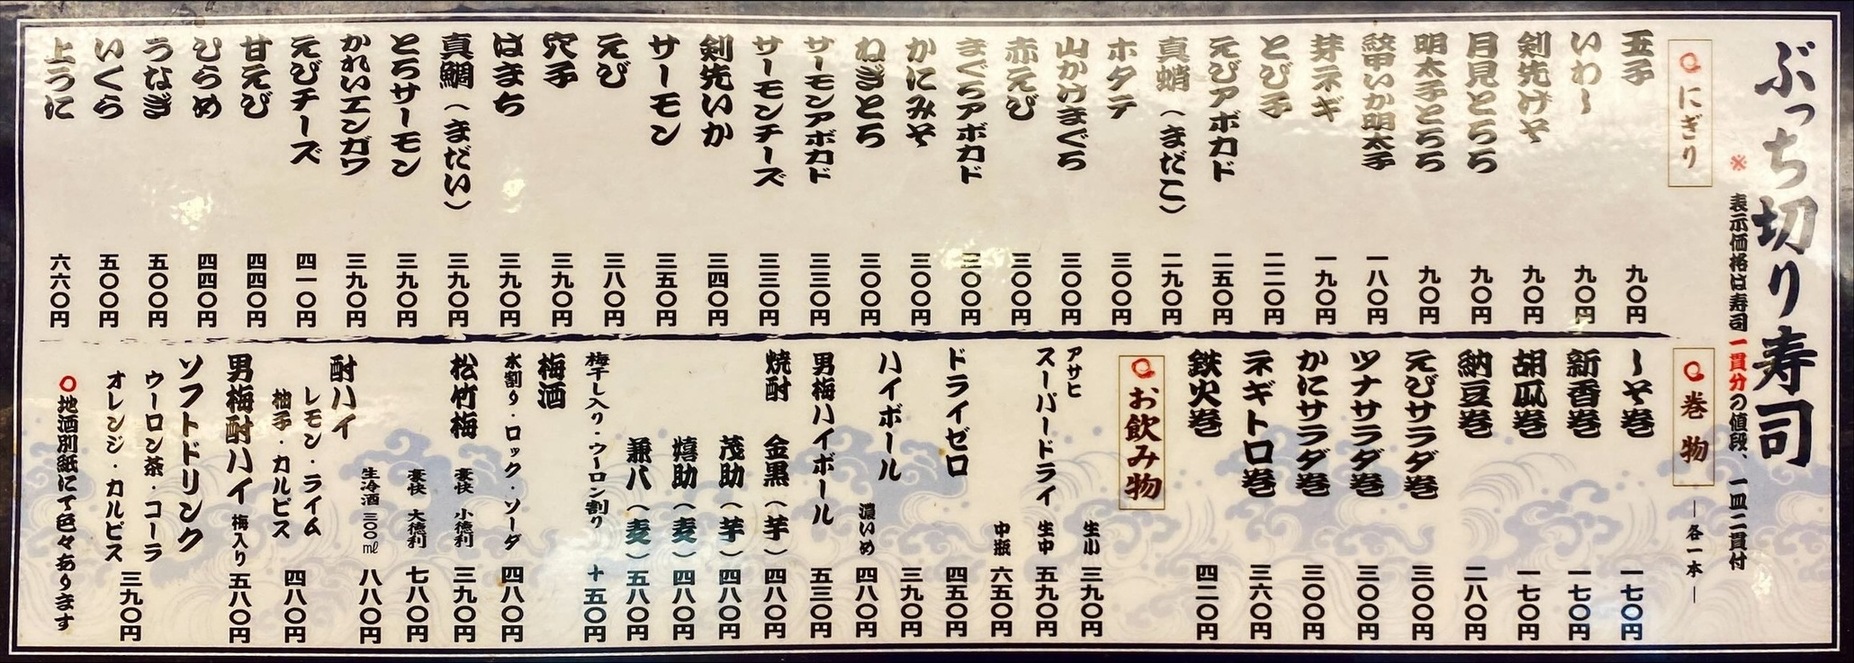 ぶっち切り寿司
※表示価格は寿司一貫分の値段、一皿二貫付
○にぎり
玉子 九〇円
いわし 九〇円
剣先げそ 九〇円
月見とろろ 九〇円
明太子とろろ 九〇円
紋甲いか明太子 一八〇円
芽ネギ 一九〇円
とび子 二二〇円
えびアボカド 二五〇円
真蛸(まだこ) 二九〇円
ホタテ 三〇〇円
山かけまぐろ 三〇〇円
赤えび 三〇〇円
まぐろアボカド 三〇〇円
かにみそ 三〇〇円
ねぎとろ 三〇〇円
サーモンアボカド 三三〇円
サーモンチーズ 三三〇円
剣先いか 三四〇円
サーモン 三五〇円
えび 三八〇円
穴子 三九〇円
はまち 三九〇円
真鯛(まだい) 三九〇円
とろサーモン 三九〇円
かれいエンガワ 三九〇円
えびチーズ 四一〇円
甘えび 四四〇円
ひらめ 四四〇円
うなぎ 五〇〇円
いくら 五〇〇円
上うに 六六〇円
○巻物 ―各一本―
しそ巻 一七〇円
新香巻 一七〇円
胡瓜巻 一七〇円
納豆巻 二八〇円
えびサラダ巻 三〇〇円
ツナサラダ巻 三〇〇円
かにサラダ巻 三〇〇円
ネギトロ巻 三六〇円
鉄火巻 四二〇円
○お飲み物
アサヒ 生小 三九〇円
スーパードライ 生中 五九〇円
中瓶 六五〇円
ドライゼロ 四五〇円
ハイボール 三九〇円
濃いめ 四八〇円
男梅ハイボール 五三〇円
焼酎 金黒(芋) 四八〇円
茂助(芋) 四八〇円
嬉助(麦) 四八〇円
兼八(麦) 五八〇円
梅干し入り・ウーロン割り +五〇円
梅酒
水割り・ロック・ソーダ 四八〇円
松竹梅 豪快 小徳利 三九〇円
豪快 大徳利 七八〇円
生冷酒 三〇〇㎖ 八八〇円
酎ハイ
レモン・ライム
柚子・カルピス 四八〇円
男梅酎ハイ 梅入り 五八〇円
ソフトドリンク
ウーロン茶・コーラ
オレンジ・カルピス 三九〇円
○地酒別紙にて色々あります